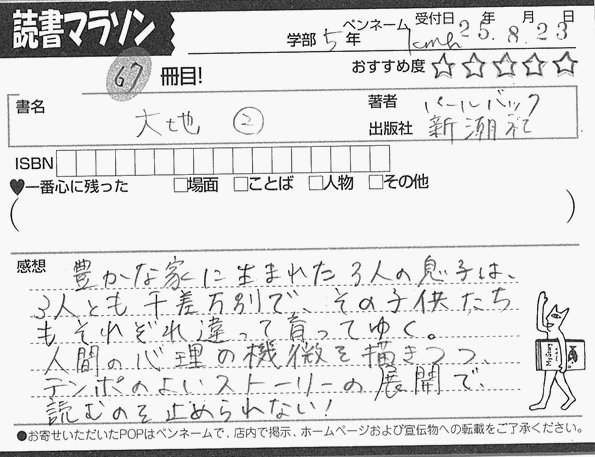 読書マラソン
学部 5年 ペンネーム kmh 受付日 25年 8月 23日
67 冊目!
おすすめ度 ☆☆☆☆☆
書名 大地 ②
著者 パールバック
出版社 新潮社
ISBN
♥一番心に残った □場面 □ことば □人物 □その他
( )
感想 豊かな家に生まれた3人の息子は、
3人とも千差万別で、その子供たち
もそれぞれ違って育ってゆく。
人間の心理の機微を描きつつ、
テンポのよいストーリーの展開で、
読むのを止められない!
●お寄せいただいたPOPはペンネームで、店内で掲示、ホームページおよび宣伝物への転載をご了承ください。